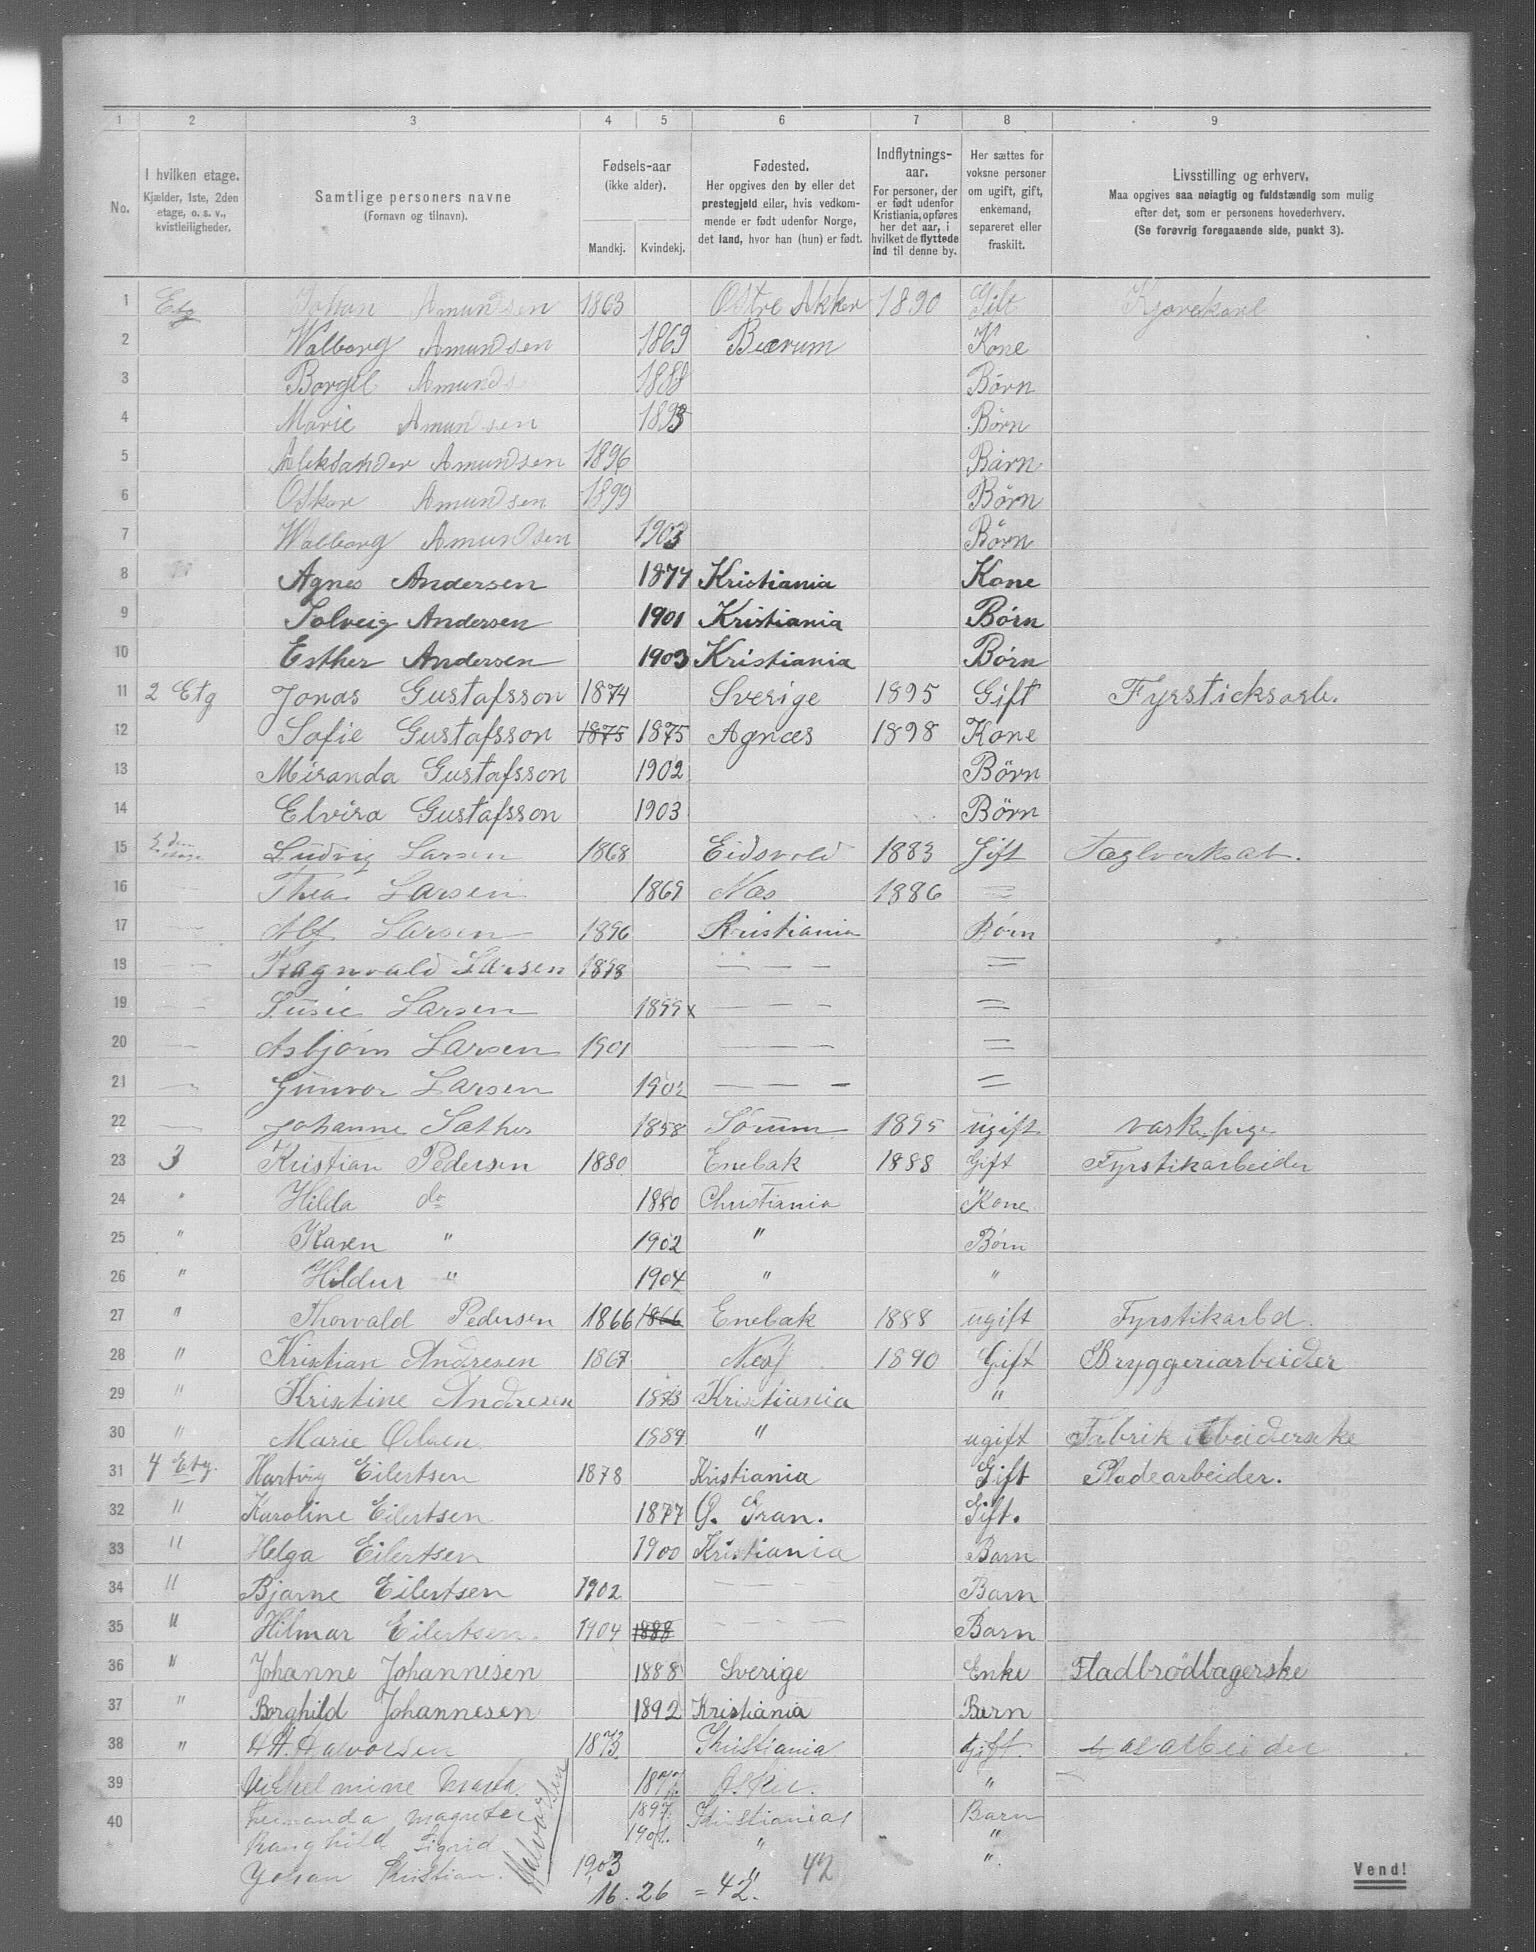 1 2 3 4 5 6 7 8 9
No. I hvilken etage. Kjælder, 1ste, 2den etage, o. s. v., kvistleiligheder. Samtlige personers navne (Fornavn og tilnavn). Fødsels-aar (ikke alder). Mandkj. Kvindekj. Fødested. Her opgives den by eller det prestegjeld eller, hvis vedkommende er født udenfor Norge, det land, hvor han (hun) er født. Indflytnings-aar. For personer, der er født udenfor Kristiania, opføres her det aar, i hvilket de flyttede ind til denne by. Her sættes for voksne personer om ugift, gift, enkemand, separeret eller fraskilt. Livsstilling og erhverv. Maa opgives saa nøiagtig og fuldstændig som mulig efter det, som er personens hovederhverv. (Se forøvrig foregaaende side, punkt 3).
1 Etg Johan Amundsen 1863 Østre Akker 1890 Gift Kjørekarl
2 Walborg Amundsen 1869 Bærum Kone
3 Borgil Amunds 1888 Børn
4 Marie Amundsen 1893 Børn
5 Aleksander Amundsen 1896 Barn
6 Oskar Amundsen 1899 Børn
7 Walborg Amundsen 1903 Børn
8 Agnes Andersen 1874 Kristiania Kone
9 Solveig Andersen 1901 Kristiania Børn
10 Esther Andersen 1903 Kristiania Børn
11 2 Etg Jonas Gustafsson 1874 Sverige 1895 Gift Fyrsticksarb.
12 Sofie Gustafsson 1875 1875 Agnæs 1898 Kone
13 Miranda Gustafsson 1902 Børn
14 Elvira Gustafsson 1903 Børn
15 2den etage Ludvig Larsen 1868 Eidsvold 1883 Gift Teglverksab.
16 — Thea Larsen 1869 Næs 1886 =
17 — Alf Larsen 1896 Kristiania Børn
19 — Ragnvald Larsen 1898 — — — =
19 — Susie Larsen 1899 x — — — =
20 — Asbjørn Larsen 1901 — — — =
21 — Gunvor Larsen 1902 — — — =
22 — Johanne Sæther 1858 Sørum 1895 ugift vaskepige
23 3 Kristian Pedersen 1880 Enebak 1888 Gift Fyrstikarbeider
24 " Hilda do 1880 Christiania Kone
25 " Karen " 1902 " Børn
26 " Hildur " 1904 " "
27 " Thorvald Pedersen 1866 1866 Enebak 1888 ugift Fyrstikarbd.
28 " Kristian Andresen 1867 Næs 1890 Gift Bryggeriarbeider
29 " Kristine Andresen 1873 Kristiania "
30 " Marie Olsen 1889 " ugift Fabrik Arbeiderske
31 4 Etg. Hartvig Eilertsen 1878 Kristiania Gift Pladearbeider.
32 " Karoline Eilertsen 1877 G. Gran. Gift.
33 " Helga Eilertsen 1900 Kristiania Barn
34 " Bjarne Eilertsen 1902 — — — Barn
35 " Hilmar Eilertsen. 1904 1888 — — — Barn
36 " Johanne Johannesen 1888 Sverige Enke Fladbrødbagerske
37 " Borghild Johannesen 1892 Kristiania Barn
38 " H. Halvorsen 1873 Kristiania Gift.
39 Vilhelmine Maria 1877 Asker "
40 Magretee 1897 Kristiania Barn
Ranghild Sigrid 1901. " "
Johan Kristian. Halvorsen 1903 " "
16 . 26 = 42. 42
Vend!